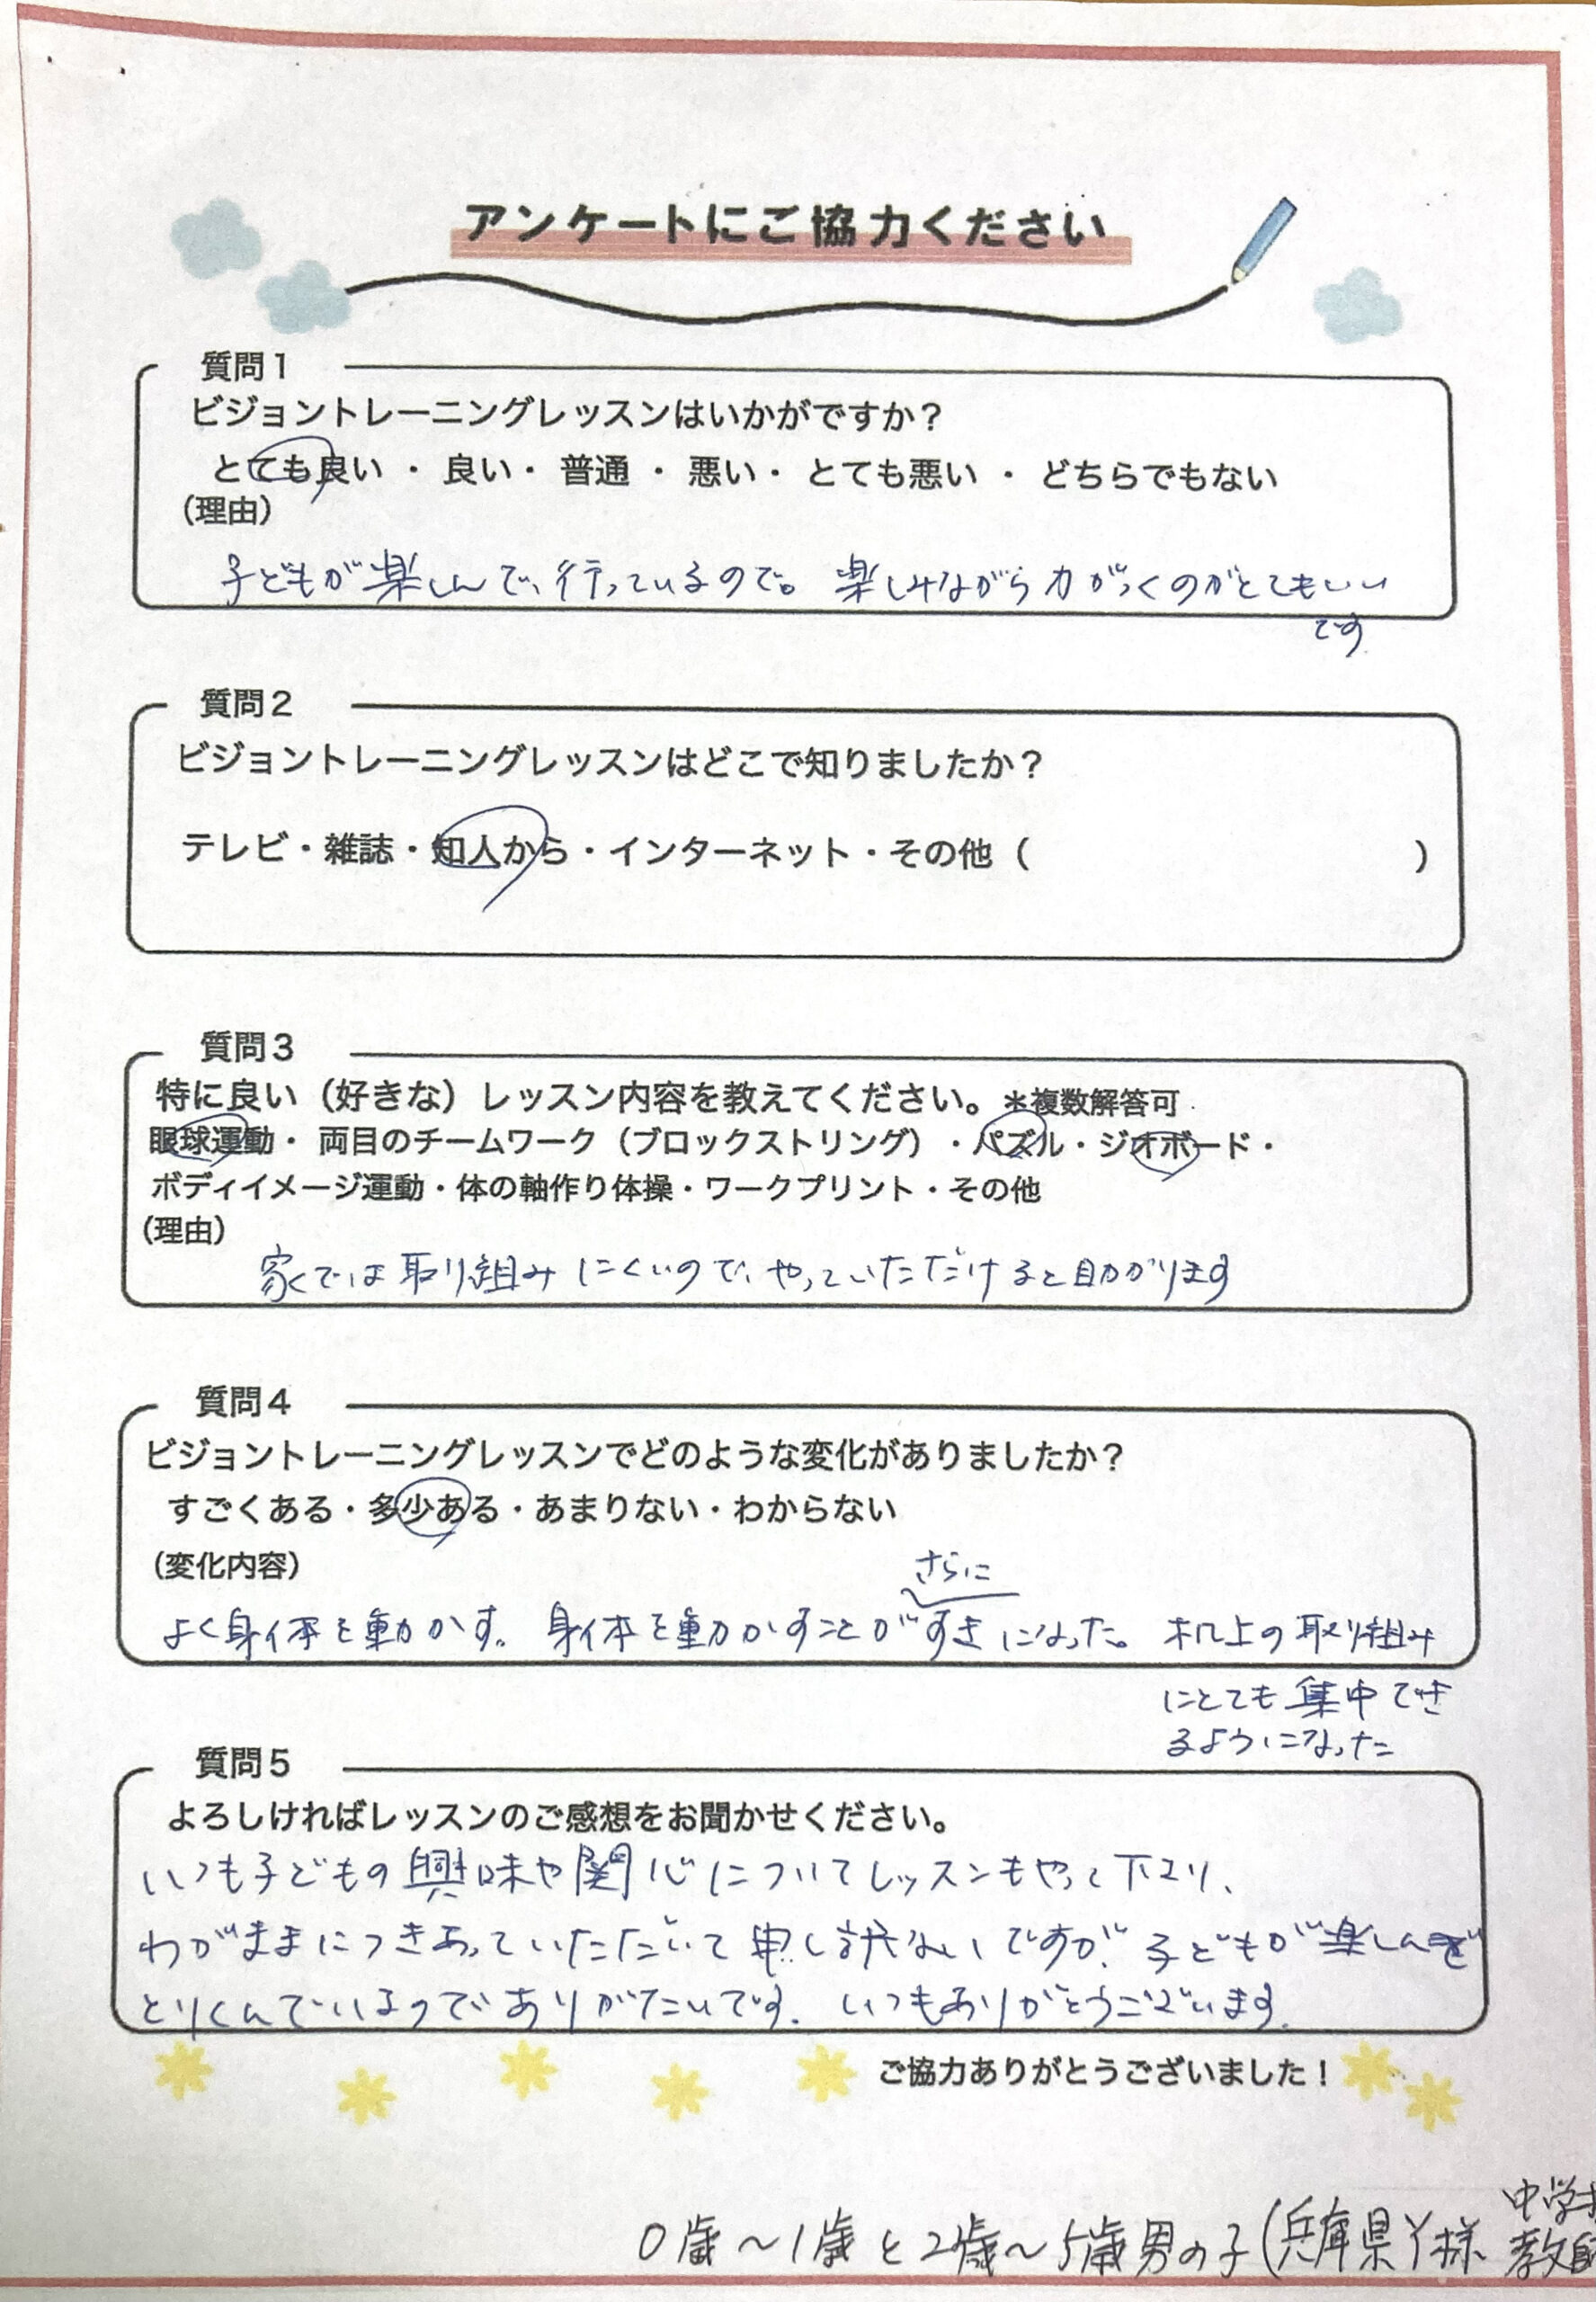 アンケートにご協力ください
質問1
ビジョントレーニングレッスンはいかがですか？
とても良い ・ 良い・ 普通 ・ 悪い・ とても悪い ・ どちらでもない
（理由）
子どもが楽しんで、行っているので。楽しみながら力がつくのがとてもいい
です
質問2
ビジョントレーニングレッスンはどこで知りましたか？
テレビ・雑誌・知人から・インターネット・その他（ ）
質問3
特に良い（好きな）レッスン内容を教えてください。＊複数解答可
眼球運動・ 両目のチームワーク（ブロックストリング）・パズル・ジオボード・
ボディイメージ運動・体の軸作り体操・ワークプリント・その他
（理由）
家では取り組みにくいので、やっていただけると助かります
質問4
ビジョントレーニングレッスンでどのような変化がありましたか？
すごくある・多少ある・あまりない・わからない
（変化内容）
さらに
よく身体を動かす。身体を動かすことがすきになった。机上の取り組み
にとても集中でき
るようになった
質問5
よろしければレッスンのご感想をお聞かせください。
いつも子どもの興味や関心についてレッスンもやって下さり、
わがままにつきあっていただいて申し訳ないですが、子どもが楽しんで
とりくんでいるのでありがたいです。いつもありがとうございます。
ご協力ありがとうございました！
中学校
0歳〜1歳と2歳〜5歳男の子(兵庫県Y様 教師